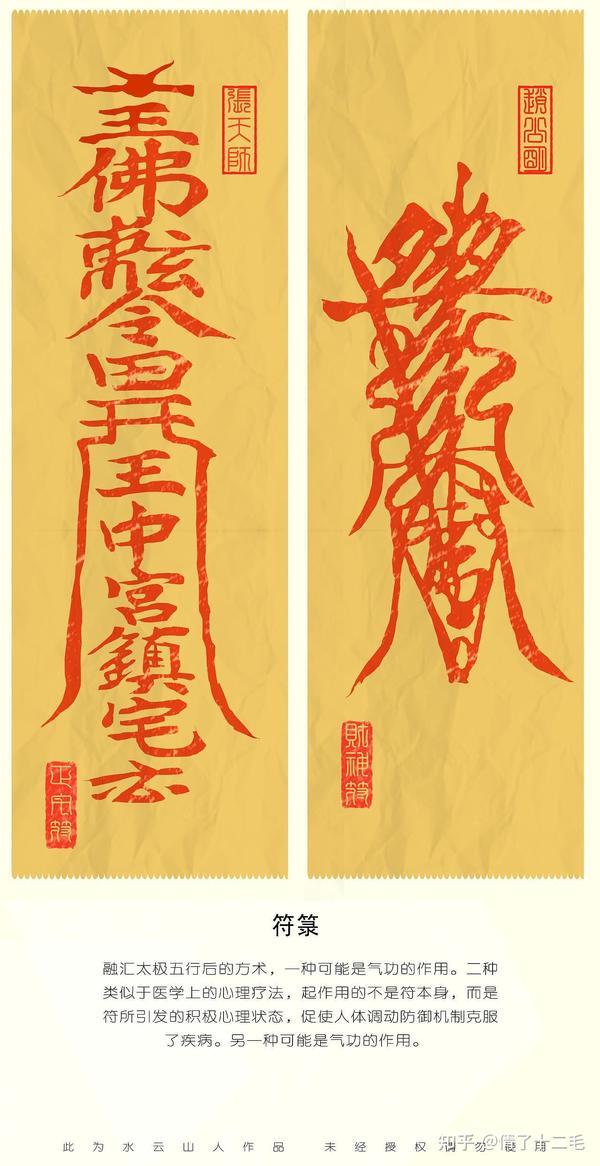 張天師
王
佛
玄
令
田
开
王
中
宮
鎮
宅
趙公明
財神符
符箓
融汇太极五行后的方术，一种可能是气功的作用。二种
类似于医学上的心理疗法，起作用的不是符本身，而是
符所引发的积极心理状态，促使人体调动防御机制克服
了疾病。另一种可能是气功的作用。
此为水云山人作品 未经授权请勿滥用
知乎 @懵了十二毛